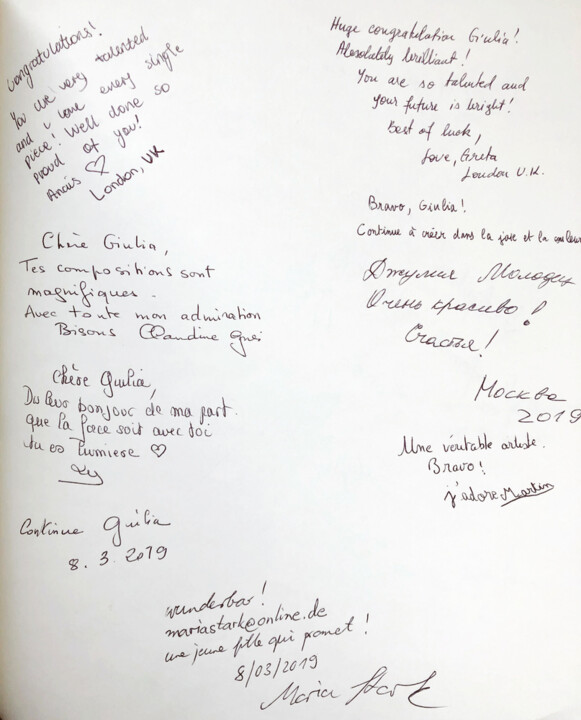 Congratulations!
You are very talented
and i love every single
piece! Well done so
proud of you!
Anaïs ♡
London, UK
Huge congratulation Giulia!
Absolutely brilliant!
You are so talented and
your future is bright!
Best of luck,
Love, Greta
London U.K.
Bravo, Giulia!
Continue à créer dans la joie et la couleur
Chère Giulia,
Tes compositions sont
magnifiques.
Avec toute mon admiration
Bisous Claudine
Джулия Молодец
Очень красиво!
Счастья!
Москва
2019
Chère Giulia,
bonjour de ma part.
que la force soit avec toi
tu es lumiere ♡
Une véritable artiste.
Bravo!
j'adore Martin
Continue Giulia
8.3.2019
wunderbar!
mariastark@online.de
une jeune fille qui promet!
8/03/2019
Maria Stark